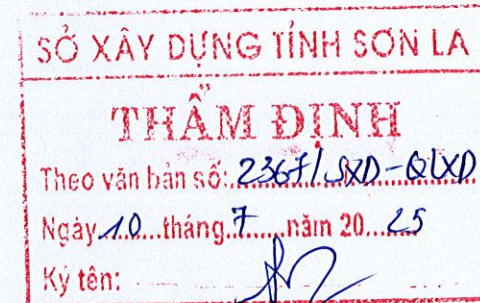 SỞ XÂY DỰNG TỈNH SƠN LA
THẨM ĐỊNH
Theo văn bản số: 2367/SXD-QLXD
Ngày 10 tháng 7 năm 2025
Ký tên: